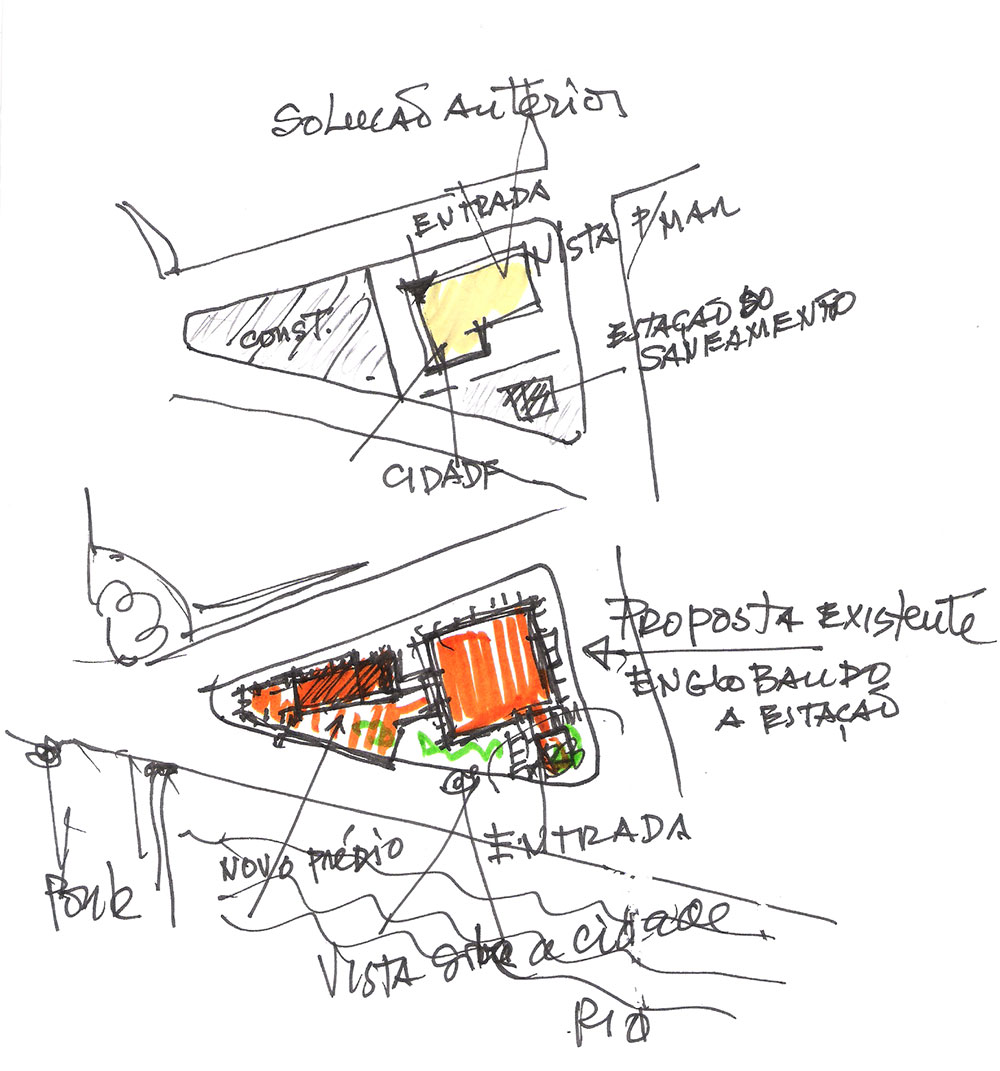 SOLUCÃO ANTERIOR
ENTRADA
VISTA P/MAR
CONST.
ESTAÇÃO DO
SANEAMENTO
CIDADE
PROPOSTA EXISTENTE
ENGLOBANDO
A ESTAÇÃO
ENTRADA
NOVO PRÉDIO
VISTA sobre a cidade
RIO